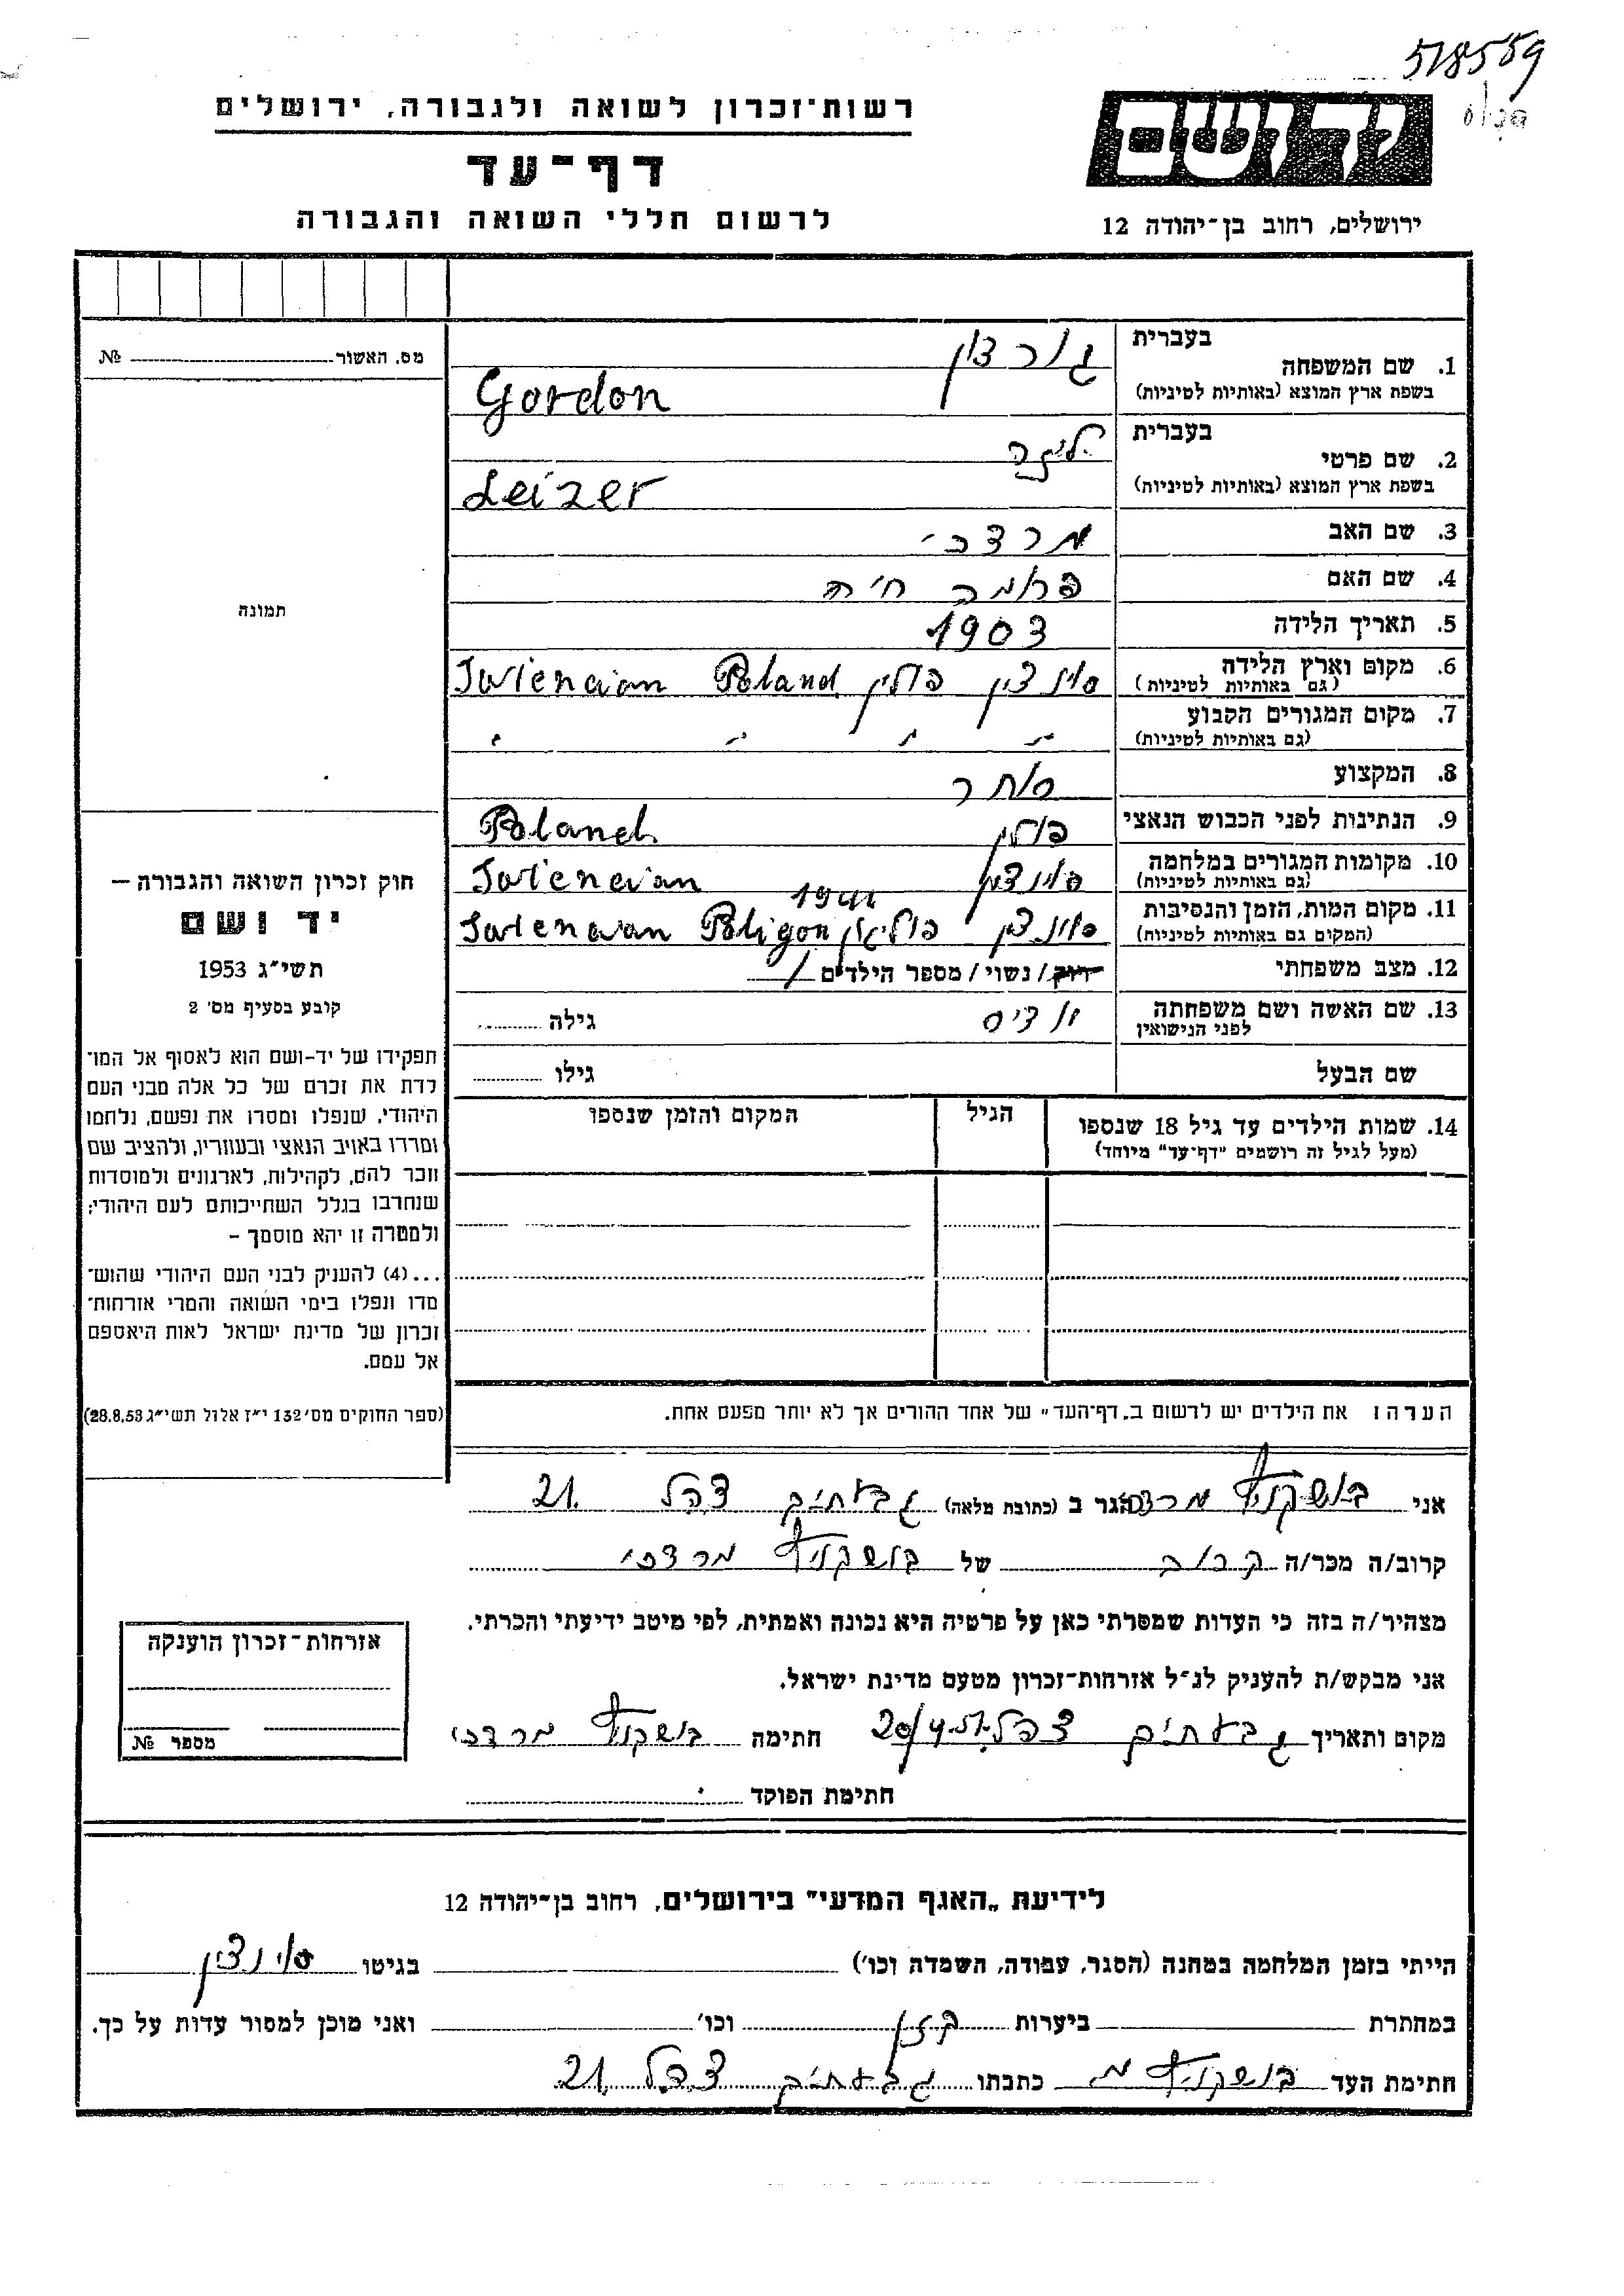 518559
רשות־זכרון לשואה ולגבורה, ירושלים
יד ושם
דף־עד
לרשום חללי השואה והגבורה
ירושלים, רחוב בן־יהודה 12
מס. האשור № 
בעברית
1. שם המשפחה
גורדון
בשפת ארץ המוצא (באותיות לטיניות)
Gordon
בעברית
2. שם פרטי
בשפת ארץ המוצא (באותיות לטיניות)
Leizer
3. שם האב מרדכי
4. שם האם פרומה חיה
5. תאריך הלידה 1903
6. מקום וארץ הלידה
(גם באותיות לטיניות) סוינצין פולין Poland
7. מקום המגורים הקבוע
(גם באותיות לטיניות) " " " "
8. המקצוע סוחר
9. הנתינות לפני הכבוש הנאצי פולין Poland
10. מקומות המגורים במלחמה
(גם באותיות לטיניות) סוינצין
11. מקום המות, הזמן והנסיבות 1941
(המקום גם באותיות לטיניות) סוינצין פוליגון Poligon
12. מצב משפחתי רוק / נשוי / מספר הילדים 1
13. שם האשה ושם משפחתה
לפני הנישואין גילה
שם הבעל גילו
14. שמות הילדים עד גיל 18 שנספו
(מעל לגיל זה רושמים "דף־עד" מיוחד)
הגיל
המקום והזמן שנספו
הערה: את הילדים יש לרשום ב„דף־העד" של אחד ההורים אך לא יותר מפעם אחת.
תמונה
חוק זכרון השואה והגבורה —
יד ושם
תשי"ג 1953
קובע בסעיף מס' 2
תפקידו של יד-ושם הוא לאסוף אל המו־
לדת את זכרם של כל אלה מבני העם
היהודי, שנפלו ומסרו את נפשם, נלחמו
ומרדו באויב הנאצי ובעוזריו, ולהציב שם
וזכר להם, לקהילות, לארגונים ולמוסדות
שנחרבו בגלל השתייכותם לעם היהודי;
ולמטרה זו יהא מוסמך –
...(4) להעניק לבני העם היהודי שהוש־
מדו ונפלו בימי השואה והמרי אזרחות־
זכרון של מדינת ישראל לאות היאספם
אל עמם.
(ספר החוקים מס' 132 י"ז אלול תשי"ג 28.8.53)
אני בושקניץ מרדכי הגר ב (כתובת מלאה) גבעתיים צהל 21
קרוב/ה מכר/ה קרוב של בושקניץ מרדכי
מצהיר/ה בזה כי העדות שמסרתי כאן על פרטיה היא נכונה ואמתית, לפי מיטב ידיעתי והכרתי.
אני מבקש/ת להעניק לנ"ל אזרחות־זכרון מטעם מדינת ישראל.
מקום ותאריך גבעתיים צהל חתימה בושקניץ מרדכי
חתימת הפוקד
אזרחות־זכרון הוענקה
מספר №
לידיעת „האגף המדעי" בירושלים, רחוב בן־יהודה 12
הייתי בזמן המלחמה במחנה (הסגר, עבודה, השמדה וכו') בגיטו סוינצין
במחתרת ביערות וכו' ואני מוכן למסור עדות על כך.
חתימת העד בושקניץ מ כתבתו גבעתיים צהל 21